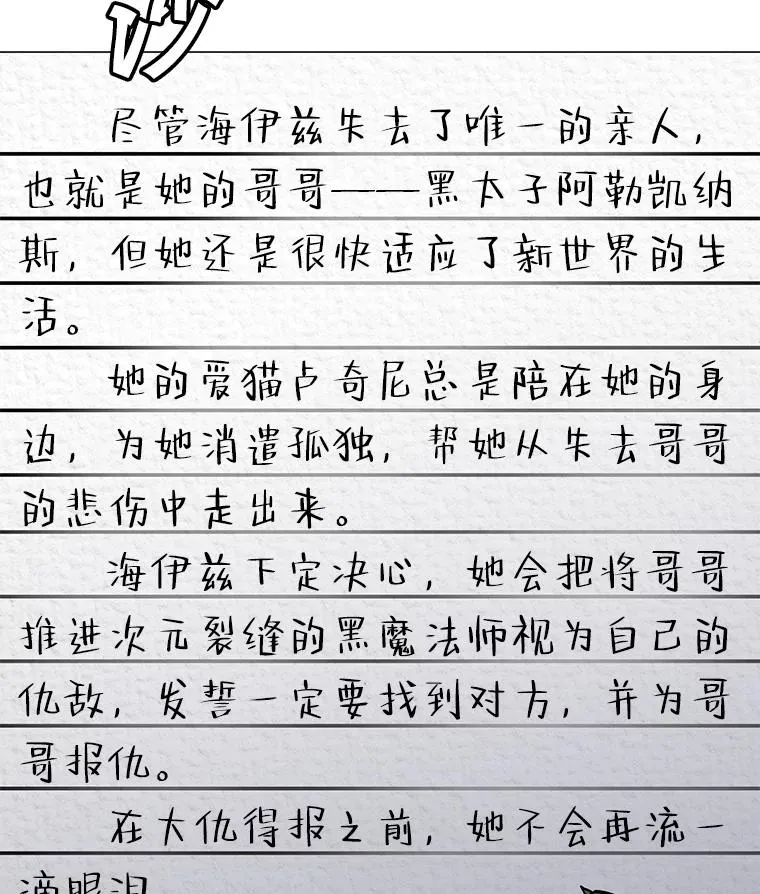 尽管海伊兹失去了唯一的亲人，
也就是她的哥哥——黑太子阿勒凯纳
斯，但她还是很快适应了新世界的生
活。
她的爱猫卢奇尼总是陪在她的身
边，为她消遣孤独，帮她从失去哥哥
的悲伤中走出来。
海伊兹下定决心，她会把将哥哥
推进次元裂缝的黑魔法师视为自己的
仇敌，发誓一定要找到对方，并为哥
哥报仇。
在大仇得报之前，她不会再流一
滴眼泪